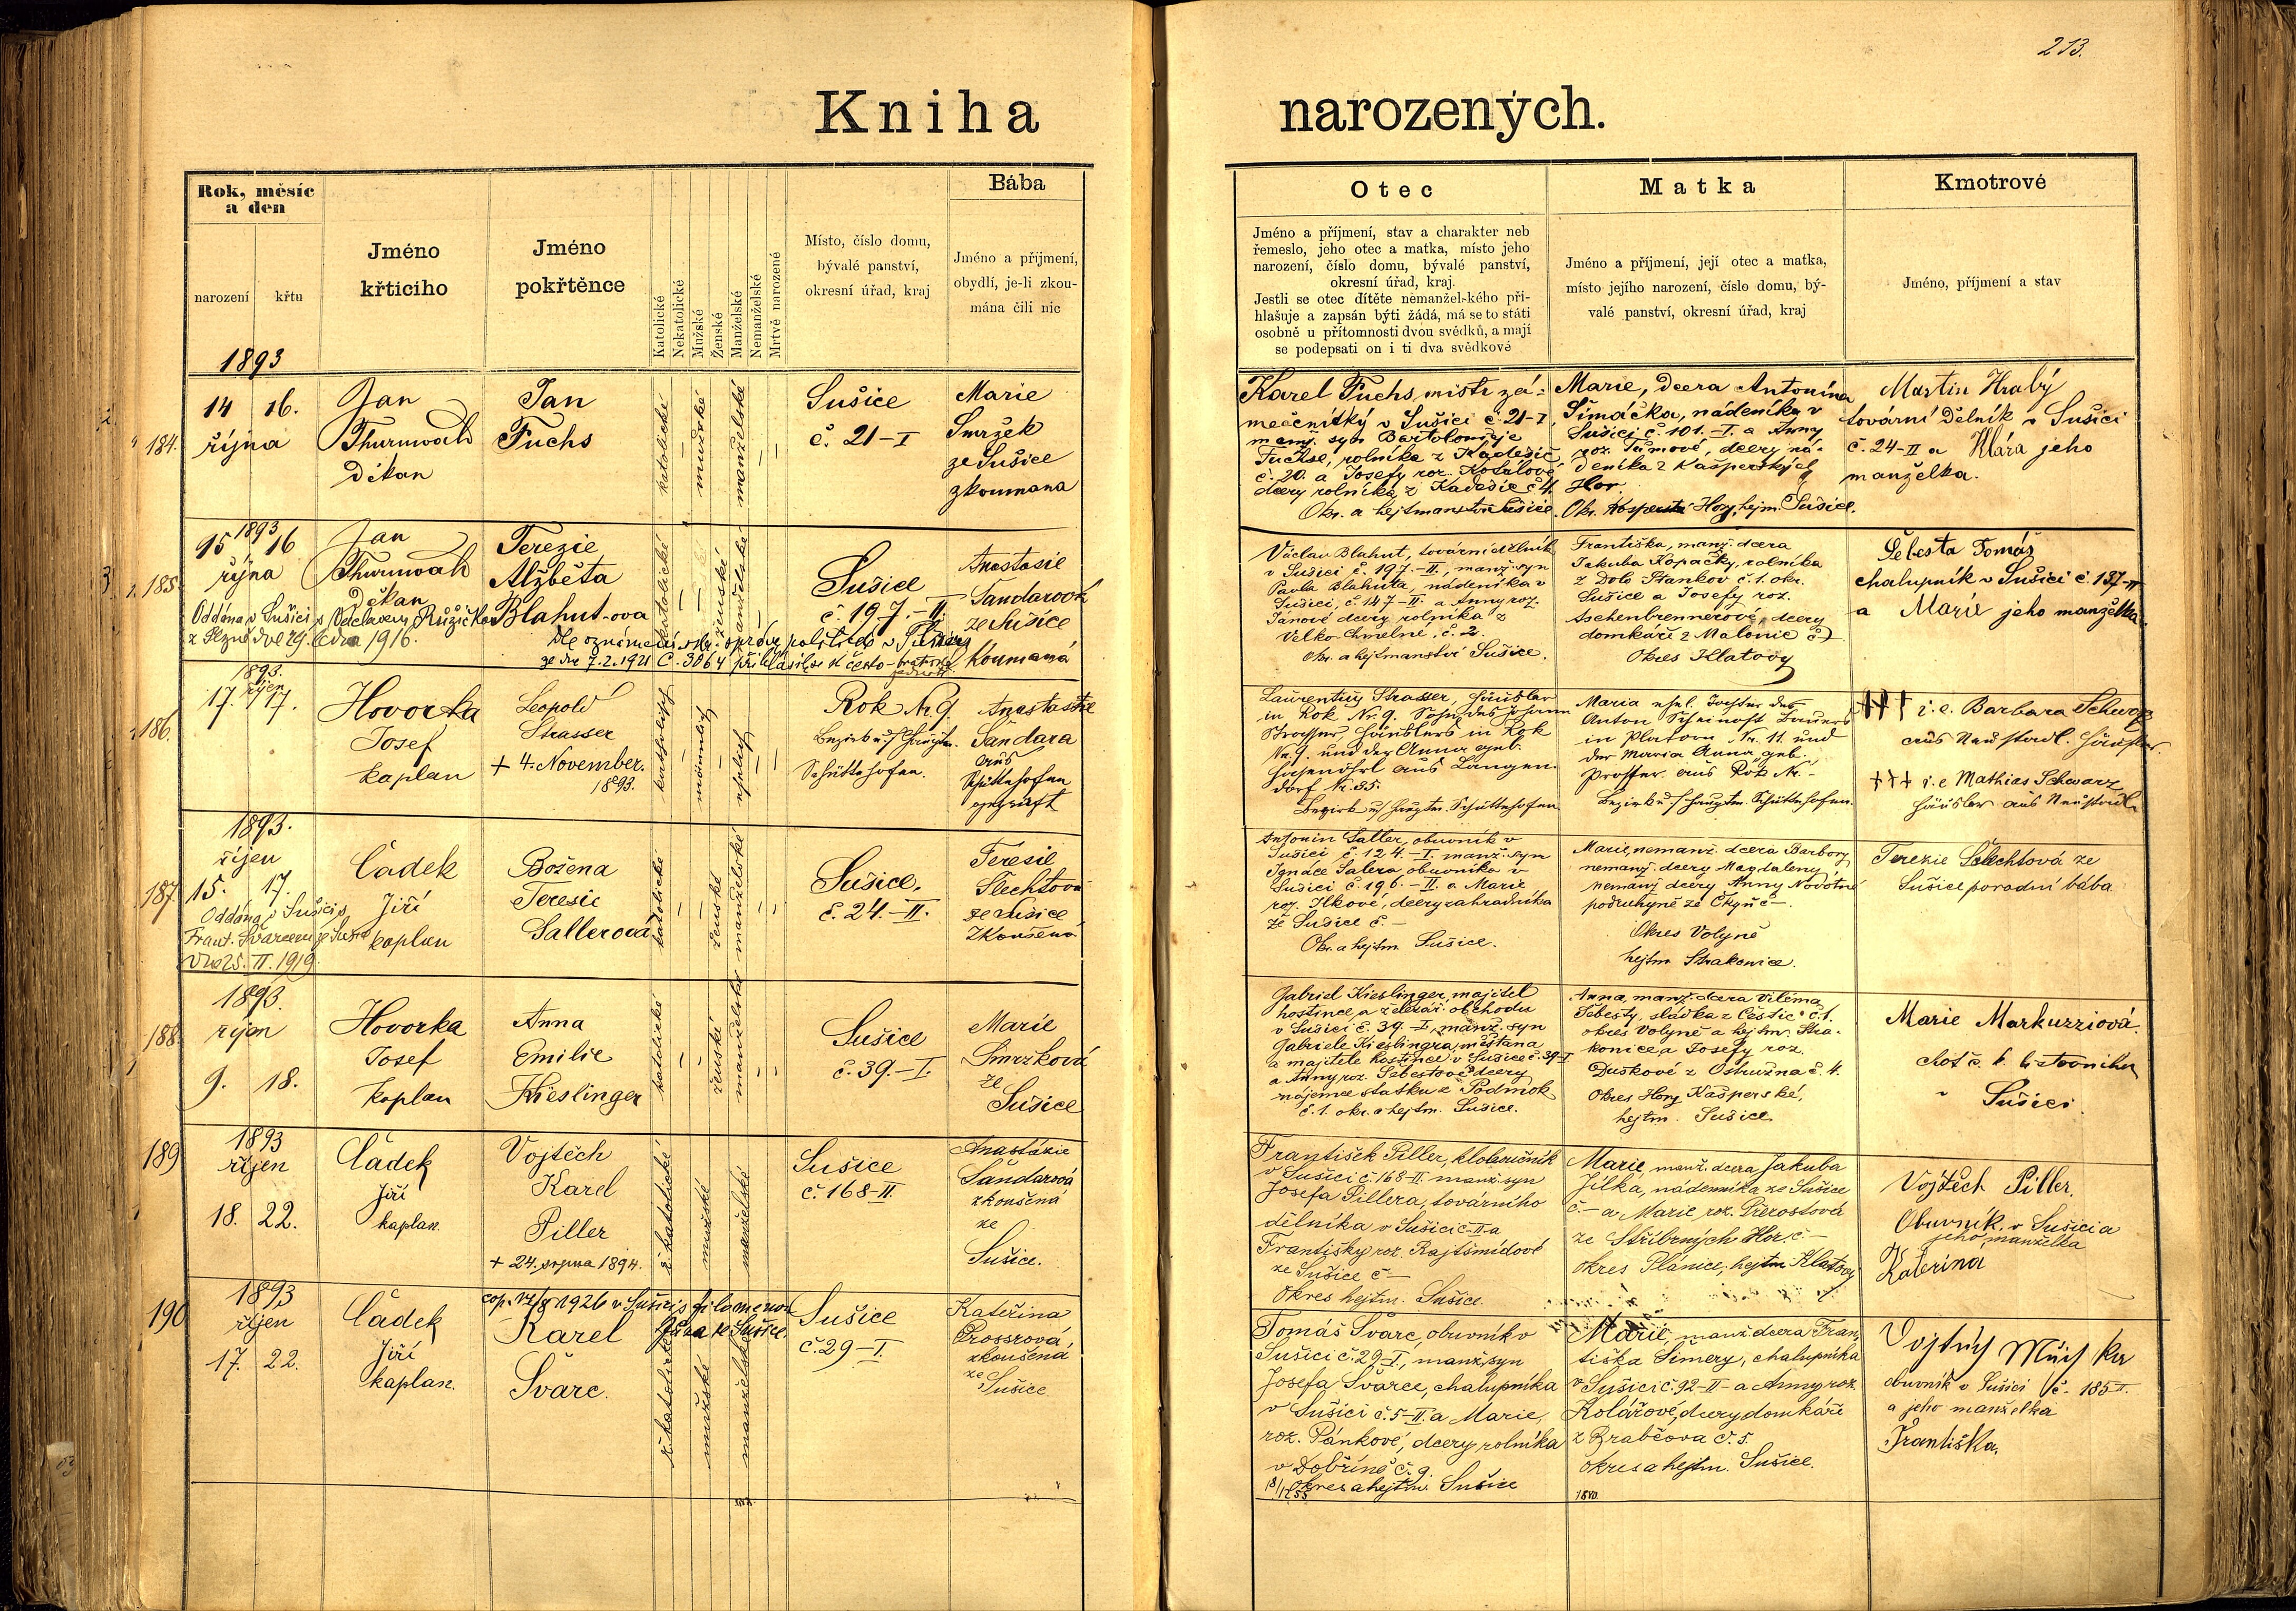 213.
Kniha narozených.
Rok, měsíc
a den
narození
křtu
Jméno
křtícího
Jméno
pokřtěnce
Katolické
Nekatolické
Mužské
Ženské
Manželské
Nemanželské
Mrtvě narozené
Místo, číslo domu,
bývalé panství,
okresní úřad, kraj
Bába
Jméno a příjmení,
obydlí, je-li zkou-
mána čili nic
Otec
Jméno a příjmení, stav a charakter neb
řemeslo, jeho otec a matka, místo jeho
narození, číslo domu, bývalé panství,
okresní úřad, kraj.
Jestli se otec dítěte nemanželského při-
hlašuje a zapsán býti žádá, má se to státi
osobně u přítomnosti dvou svědků, a mají
se podepsati on i ti dva svědkové
Matka
Jméno a příjmení, její otec a matka,
místo jejího narození, číslo domu, bý-
valé panství, okresní úřad, kraj
Kmotrové
Jméno, příjmení a stav
1893
184.
14 16.
října
Jan
Thurnwald
Děkan
Jan
Fuchs
katolické
mužské
manželské
Sušice
č. 21-I
Marie
Smržek
ze Sušice
zkoumana
Karel Fuchs, mistr zá-
mečnický v Sušici č. 21-I,
manž. syn Bartoloměje
Fuchse, rolníka z Kadešic
č. 20. a Josefy roz.
dcery rolníka z Kadešic č. 4.
Okr. a hejtmanství Sušice.
Marie, dcera Antonína
Šimáčka, nádeníka v
Sušici č. 101.-I. a Anny
roz. Tůmové, dcery ná-
deníka z Kašperských
Hor.
Okr. Hory, hejm. Sušice.
Martin Hrabý
tovární dělník v Sušici
č. 24-II a Klára jeho
manželka.
185.
1893
15 16
října
Jan
Thurnwald
Děkan
Terezie
Alžběta
Blahut-ova
katolické
ženské
manželské
Sušice
č. 197.-II.
Anastasie
Šandarová
ze Sušice
koumaná
Oddána v Sušici s Václavem Růžičkou
1916.
Dle oznámení okr. správy politické v Sušici
ze dne 7.2.1921 č. 3064 přihlásila se k česko-bratrské
Václav Blahut, tovární dělník
v Sušici č. 197.-II., manž. syn
Pavla Blahuta, nádeníka v
Sušici, č. 147-II. a Anny roz.
Janové dcery rolníka z
Velko Chmelné, č. 2.
Okr. a hejtmanství Sušice.
Františka, manž. dcera
Jakuba Kopačky, rolníka
z Dol. Staňkov č. 1. okr.
Sušice a Josefy roz.
Aschenbrennerové, dcery
domkáře z Malonic č.
Okres Klatovy
Šebesta Tomáš
chalupník v Sušici č. 137-II
a Marie jeho manželka.
186.
1893.
říjen
17. 17.
Hovorka
Josef
kaplan
Leopold
Strasser
+ 4. November.
1893.
katholisch
männlich
ehelich
Rok Nr. 9.
Bezirk u. / Hauptm.
Schüttenhofen.
Anastasie
Šandara
aus
Schüttenhofen
geprüft
Laurentius Strasser, Häusler
in Rok Nr. 9. Sohn des Johann
Strasser, Häuslers in Rok
Nr. 9. und der Anna geb.
aus Langen-
dorf Nr. 35.
Bezirk u/ Hauptm. Schüttenhofen
Maria ehel. Tochter des
Anton Bauers
in Platorn Nr. 11. und
der Maria Anna geb.
Prosser aus Rok Nr. -
Bezirk u / Hauptm. Schüttenhofen.
+++ i. e. Barbara Schwarz
aus Neustadl. Häusler
+++ i. e Mathias Schwarz
Häusler aus Neustadl
187.
1893.
říjen
15. 17.
Čadek
Jiří
kaplan
Božena
Teresie
Sallerová
katolické
ženské
manželské
Sušice.
č. 24.-II.
Teresie
Šlechtová
ze Sušice
Zkoušená
Oddána v Sušici s
Frant. Švarcem ze Sušice
dne 25. II. 1919.
Antonín Saller, obuvník v
Sušici č. 124.-I. manž. syn
Ignáce Salera obuvníka v
Sušici č. 196.-II. a Marie
roz. Jlkové, dcery zahradníka
ze Sušice č. -
Okr. a hejtm. Sušice.
Marie, nemanž. dcera Barbory,
nemanž. dcery Magdaleny,
nemanž. dcery Anny Novotné
podruhyně ze Čkyň č -.
Okres Volyně
hejtm. Strakonice.
Terezie Šlechtová ze
Sušice porodní bába
188.
1893.
říjen
9. 18.
Hovorka
Josef
kaplan
Anna
Emilie
Kieslinger
katolické
ženské
manželské
Sušice
č. 39.-I.
Marie
Smržková
ze
Sušice
Gabriel Kieslinger, majitel
hostince a železář. obchodu
v Sušici č. 39.-I., manž. syn
Gabriele Kieslingra, měšťana
a majitele hostince v Sušice č. 39-I
a Anny roz. Šebestové dcery
nájemce statku z Podmok
č. 1. okr. a hejtm. Sušice.
Anna, manž. dcera Viléma
Šebesty, sládka z Čestic č. 1.
okres Volyně a hejtm. Stra-
konice a Josefy roz.
Duškové z Ostružna č. 4.
Okres Hory Kašperské,
hejtm. Sušice
Marie Markuzziová.
choť c. k. listovního
v Sušici.
189
1893
říjen
18. 22.
Čadek
Jiří
kaplan.
Vojtěch
Karel
Piller
+ 24. srpna 1894.
ř. katolické
mužské
manželské
Sušice
č. 168-II.
Anastázie
Šandarová
zkoušená
ze
Sušice.
František Piller, kloboučník
v Sušici č. 168-II. manž. syn
Josefa Pillera, továrního
dělníka v Sušici č-II a
Františky roz. Rajtšmídové
ze Sušice č -
Okres hejtm. Sušice.
Marie, manž. dcera Jakuba
Jílka, nádenníka ze Sušice
č. - a Marie roz.
ze Stříbrných Hor č -
okres Plánice, hejtm Klatovy
Vojtěch Piller.
Obuvník v Sušici a
jeho manželka
Kateřina
190
1893
říjen
17. 22.
Čadek
Jiří
kaplan.
cop. 1926 v Sušici s Filomenou
ze Sušice.
Karel
Švarc.
ř. katolické
mužské
manželské
Sušice
č. 29-I.
Kateřina
Prossrová,
zkoušená
ze
Sušice
Tomáš Švarc, obuvník v
Sušici č. 29-I., manž. syn
Josefa Švarce, chalupníka
v Sušici č. 5-II. a Marie,
roz. Pánkové, dcery rolníka
v Dobříně č. 9.
okres a hejtm. Sušice
Marie, manž. dcera Fran-
tiška Šimery, chalupníka
v Sušici č. 92-II- a Anny roz.
Kolářové, dcery domkáře
z Brabčova č. 5.
okres a hejtm. Sušice.
Vojtěch
obuvník v Sušici č. 185-I.
a jeho manželka
Františka.